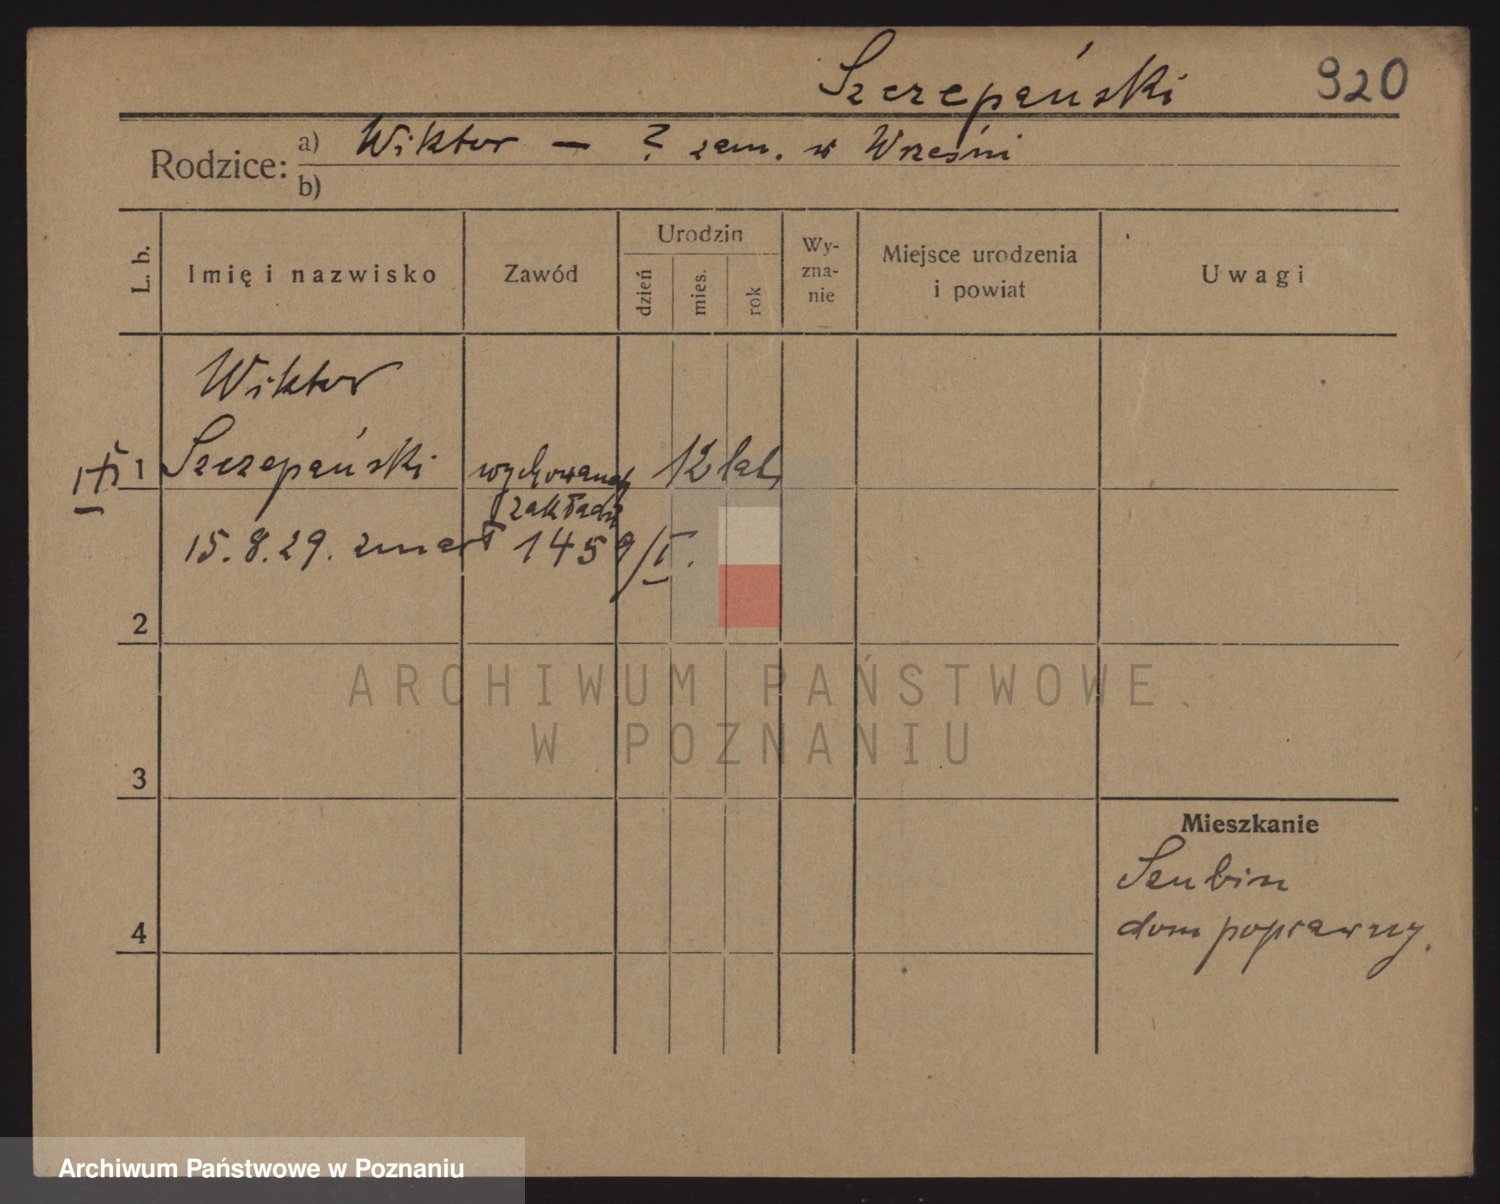 Szczepański 920
Rodzice: a) Wiktor — ? zam. w Wrześni
b)
L. b. Imię i nazwisko Zawód Urodzin dzień mies. rok Wy-zna-nie Miejsce urodzenia i powiat Uwagi
Wiktor
1 Szczepański wychowanek 12 lat
zakładu
15.8.29. zmarł 1459/I.
2
ARCHIWUM PAŃSTWOWE
W POZNANIU
3
Mieszkanie
Szubin
4 dom poprawczy.
Archiwum Państwowe w Poznaniu